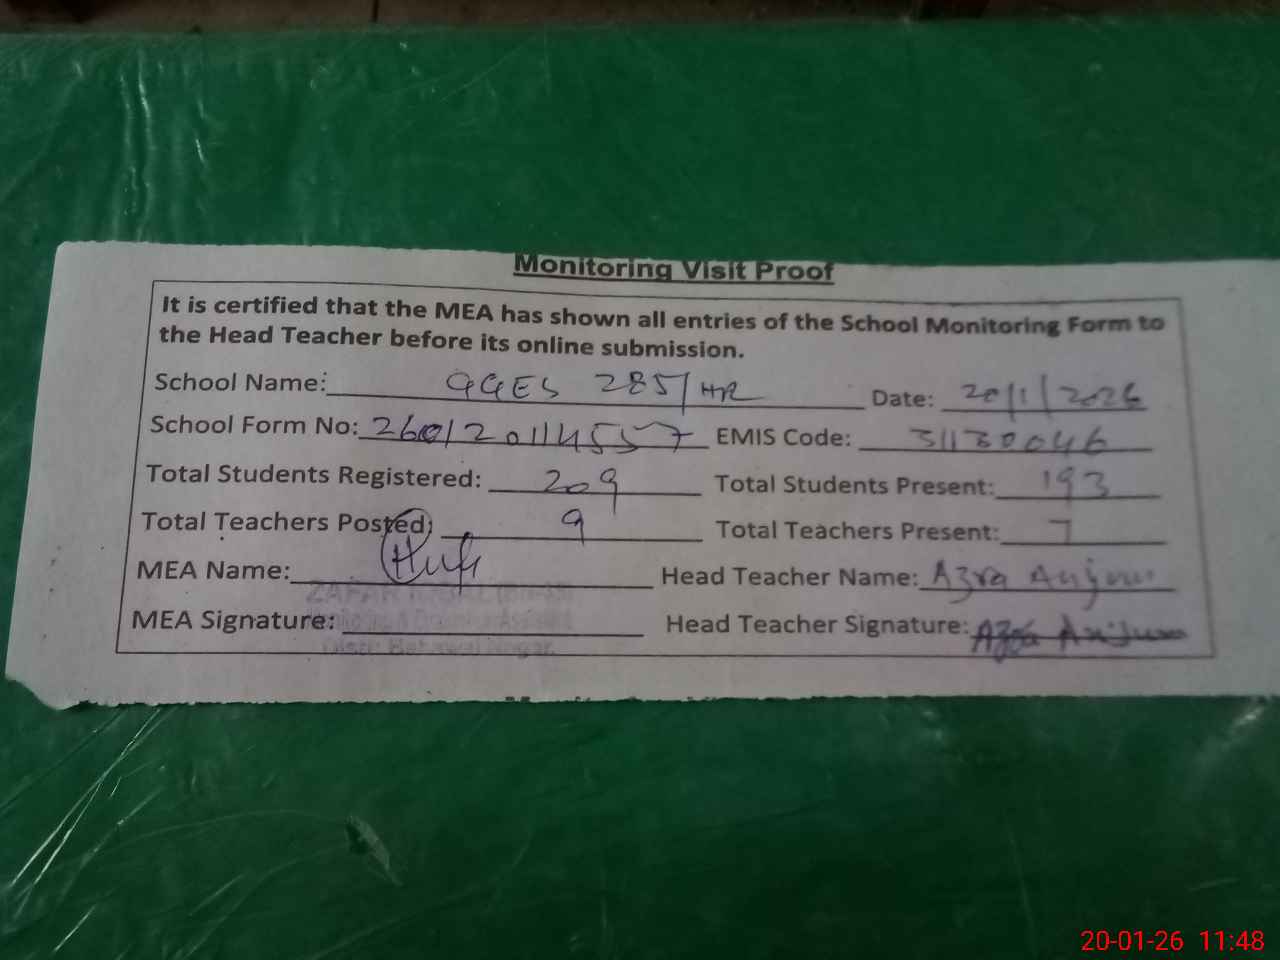 Monitoring Visit Proof
It is certified that the MEA has shown all entries of the School Monitoring Form to
the Head Teacher before its online submission.
School Name: GGES 285/HR Date: 20/1/2026
School Form No: 260120114557 EMIS Code: 31130046
Total Students Registered: 209 Total Students Present: 193
Total Teachers Posted: 9 Total Teachers Present: 7
MEA Name: Head Teacher Name: Azra Anjum
ZAFAR IQBAL
MEA Signature: Head Teacher Signature: Azra Anjum
Distt: Bahawal Nagar
20-01-26 11:48